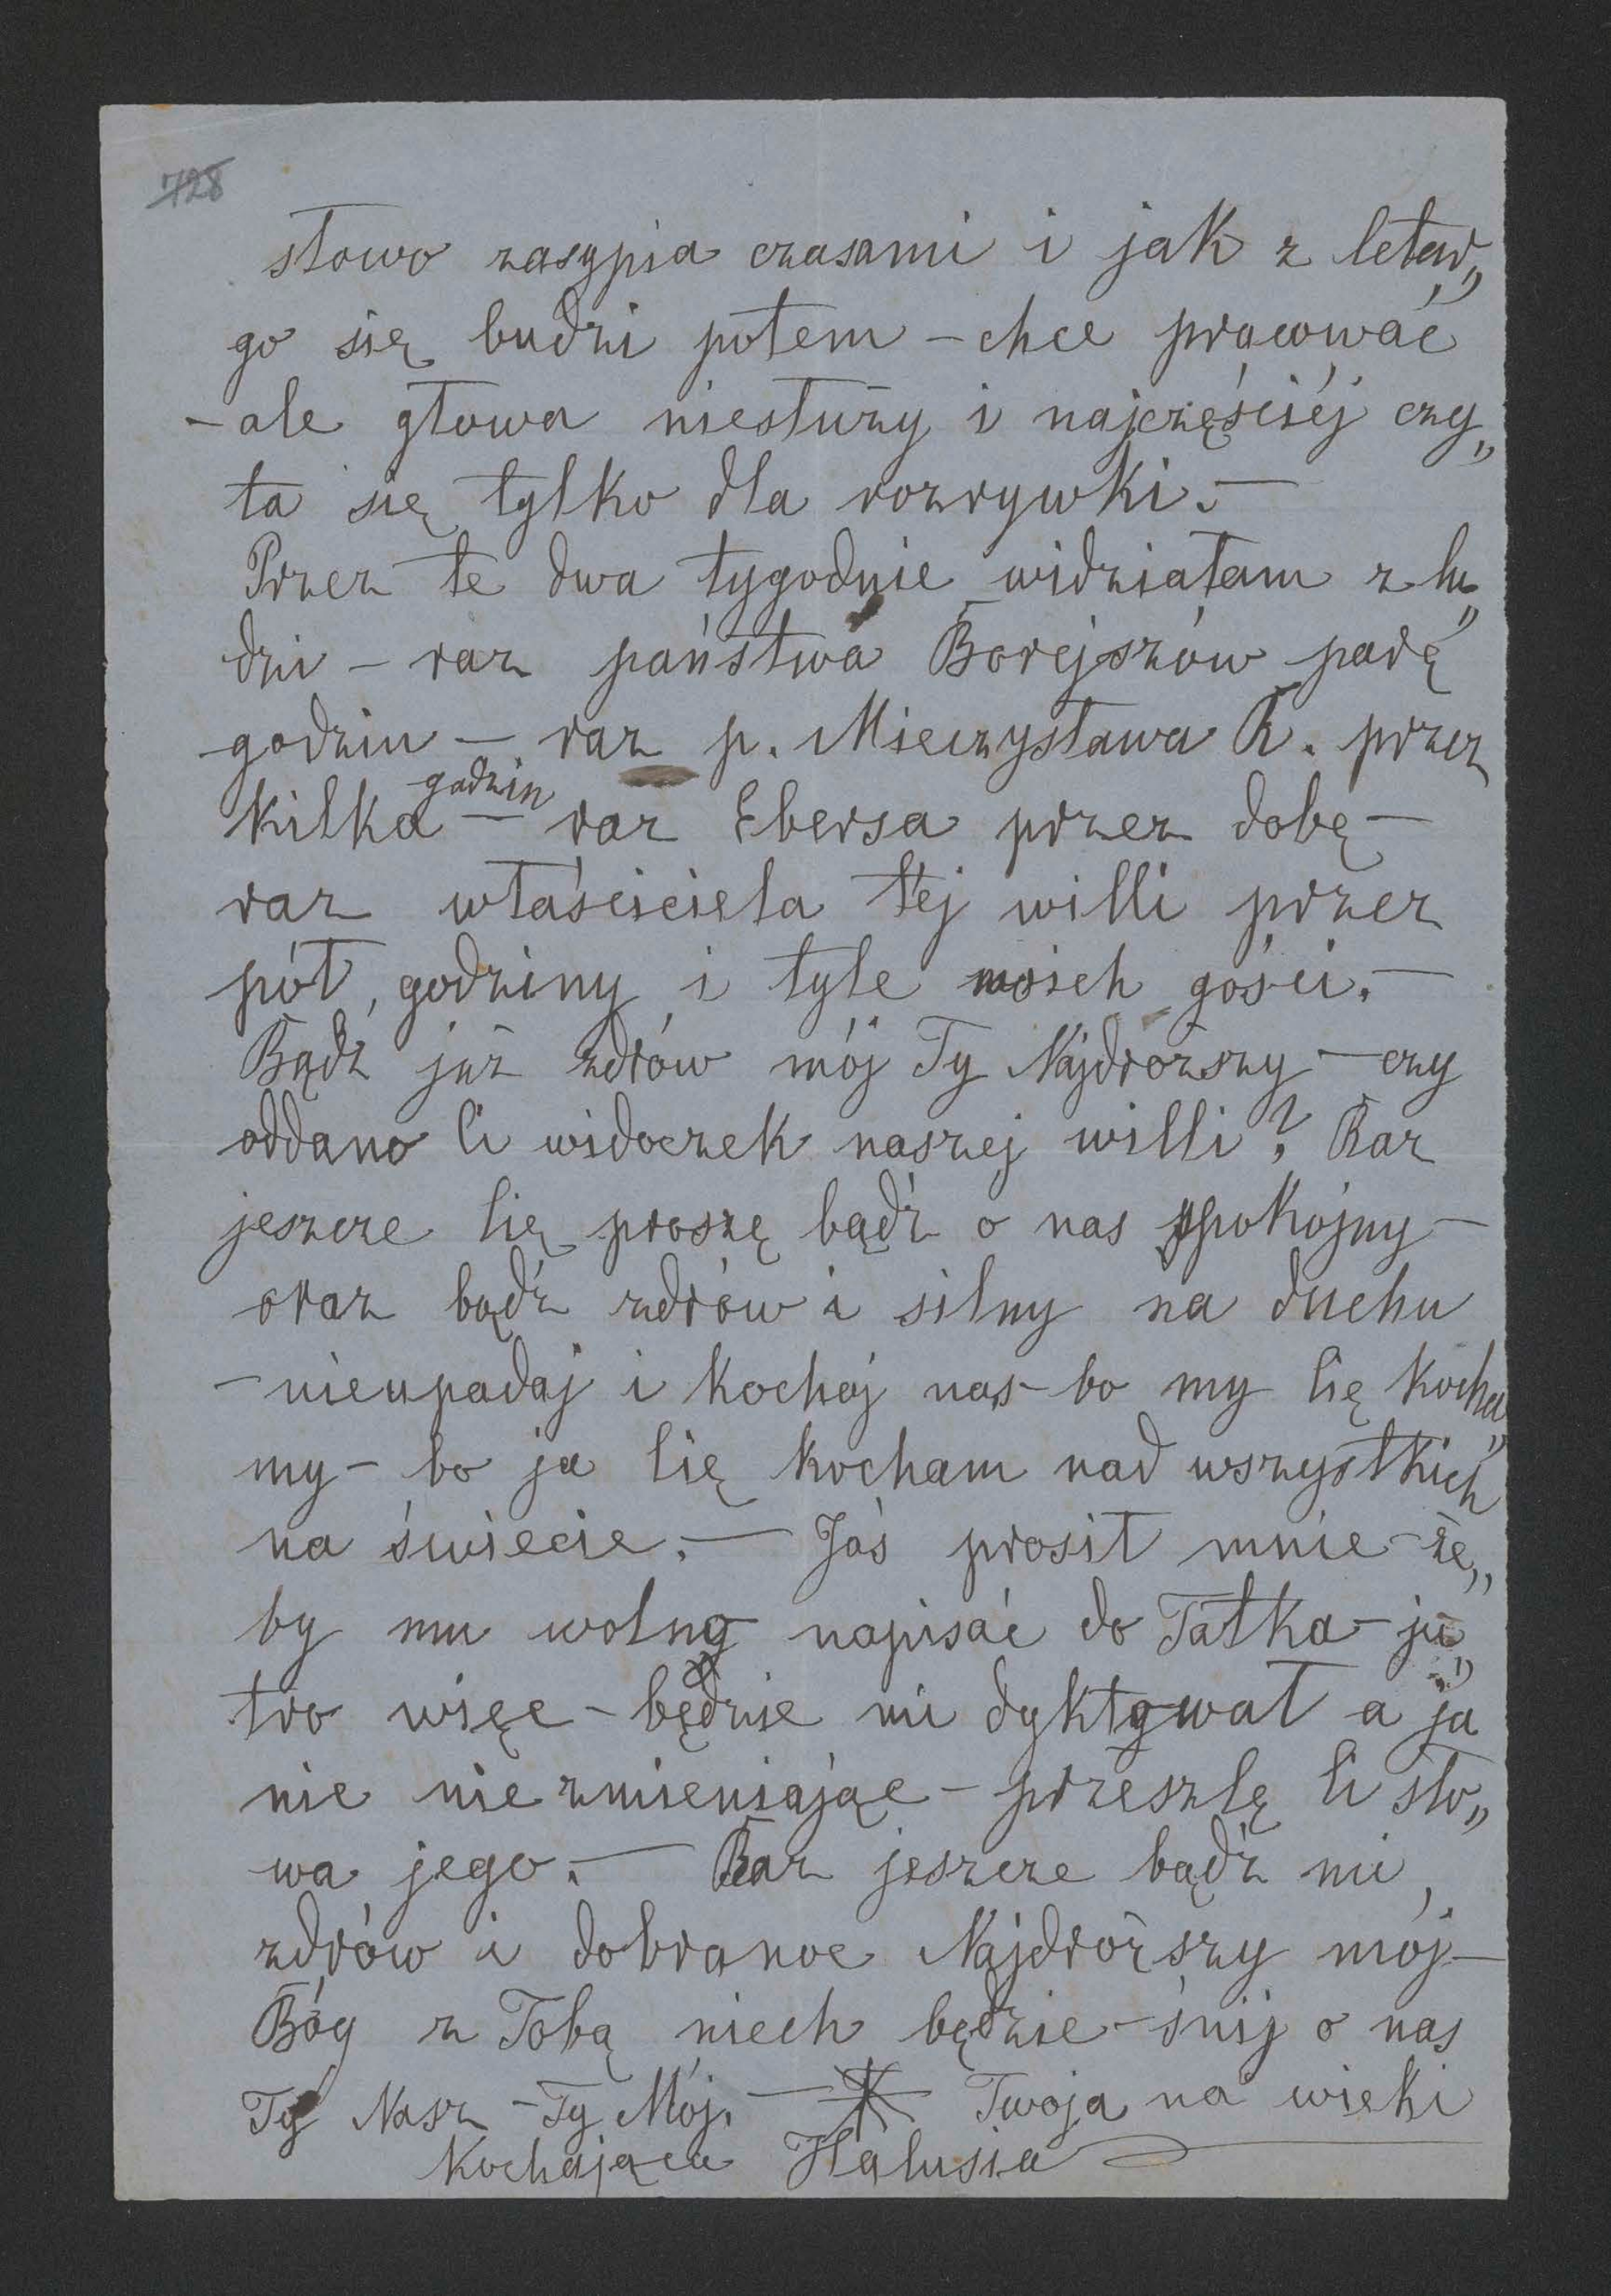 728
słowo zasypia czasami i jak z letar„
go się budzi potem – chce pracować
– ale głowa niesłuży i najczęściéj czy„
ta się tylko dla rozrywki. –
Przez te dwa tygodnie widziałam z lu„
dzi – raz państwa Borejszów parę
godzin – raz p. Mieczysława R. przez
kilka godzin – raz Ebersa przez dobę –
raz właściciela téj willi przez
pół godziny i tyle moich gości. –
Bądź już zdrów mój Ty Najdroższy – czy
oddano Ci widoczek naszej willi? Raz
jeszcze Cię proszę bądź o nas spokojny –
oraz bądź zdrów i silny na duchu
– nieupadaj i kochaj nas – bo my Cię kocha„
my – bo ja Cię kocham nad wszystkich
na świecie. – Jaś prosił mnie – że„
by mu wolno napisać do Tatka – ju„
tro więc – będzie mi dyktował a ja
nic nie zmieniając – przeszlę Ci sło„
wa jego. – Raz jeszcze bądź mi
zdrów i dobranoc Najdroższy mój –
Bóg z Tobą niech będzie – śnij o nas
Ty Nasz – Ty Mój. – Twoja na wieki
Kochająca Halusia